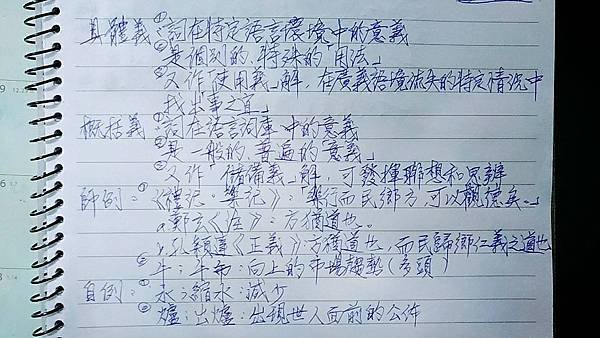 具體義:①詞在特定語言環境中的意義
②是個別的、特殊的「用法」
③又作「使用義」解,在廣義語境流失的特定情況中
找出事之宜」
概括義:①詞在語言詞庫中的意義
②是一般的、普遍的意義」
③又作「儲備義」解,可發揮聯想和思辨
師例:①《禮記·樂記》:「樂行而民鄉方,可以觀德矣。」
a.鄭玄《注》:方猶道也。
b.孔穎達《正義》方猶道也,而民歸鄉仁義之道也
②牛:牛市:向上的市場趨勢(多頭)
自例:①水:縮水:減少
②爐:出爐:出現世人面前的公佈